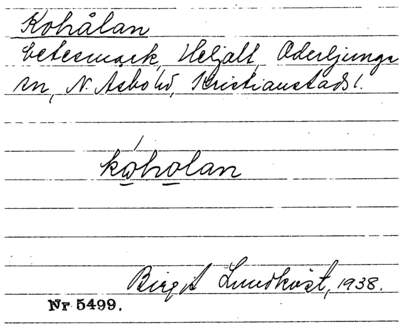 Kohålan
betesmark, Heljalt, Oderljunga
sn, N. Åsbo hd, Kristianstads l.
kóholan
Birgit Lundkvist, 1938.
Nr 5499.